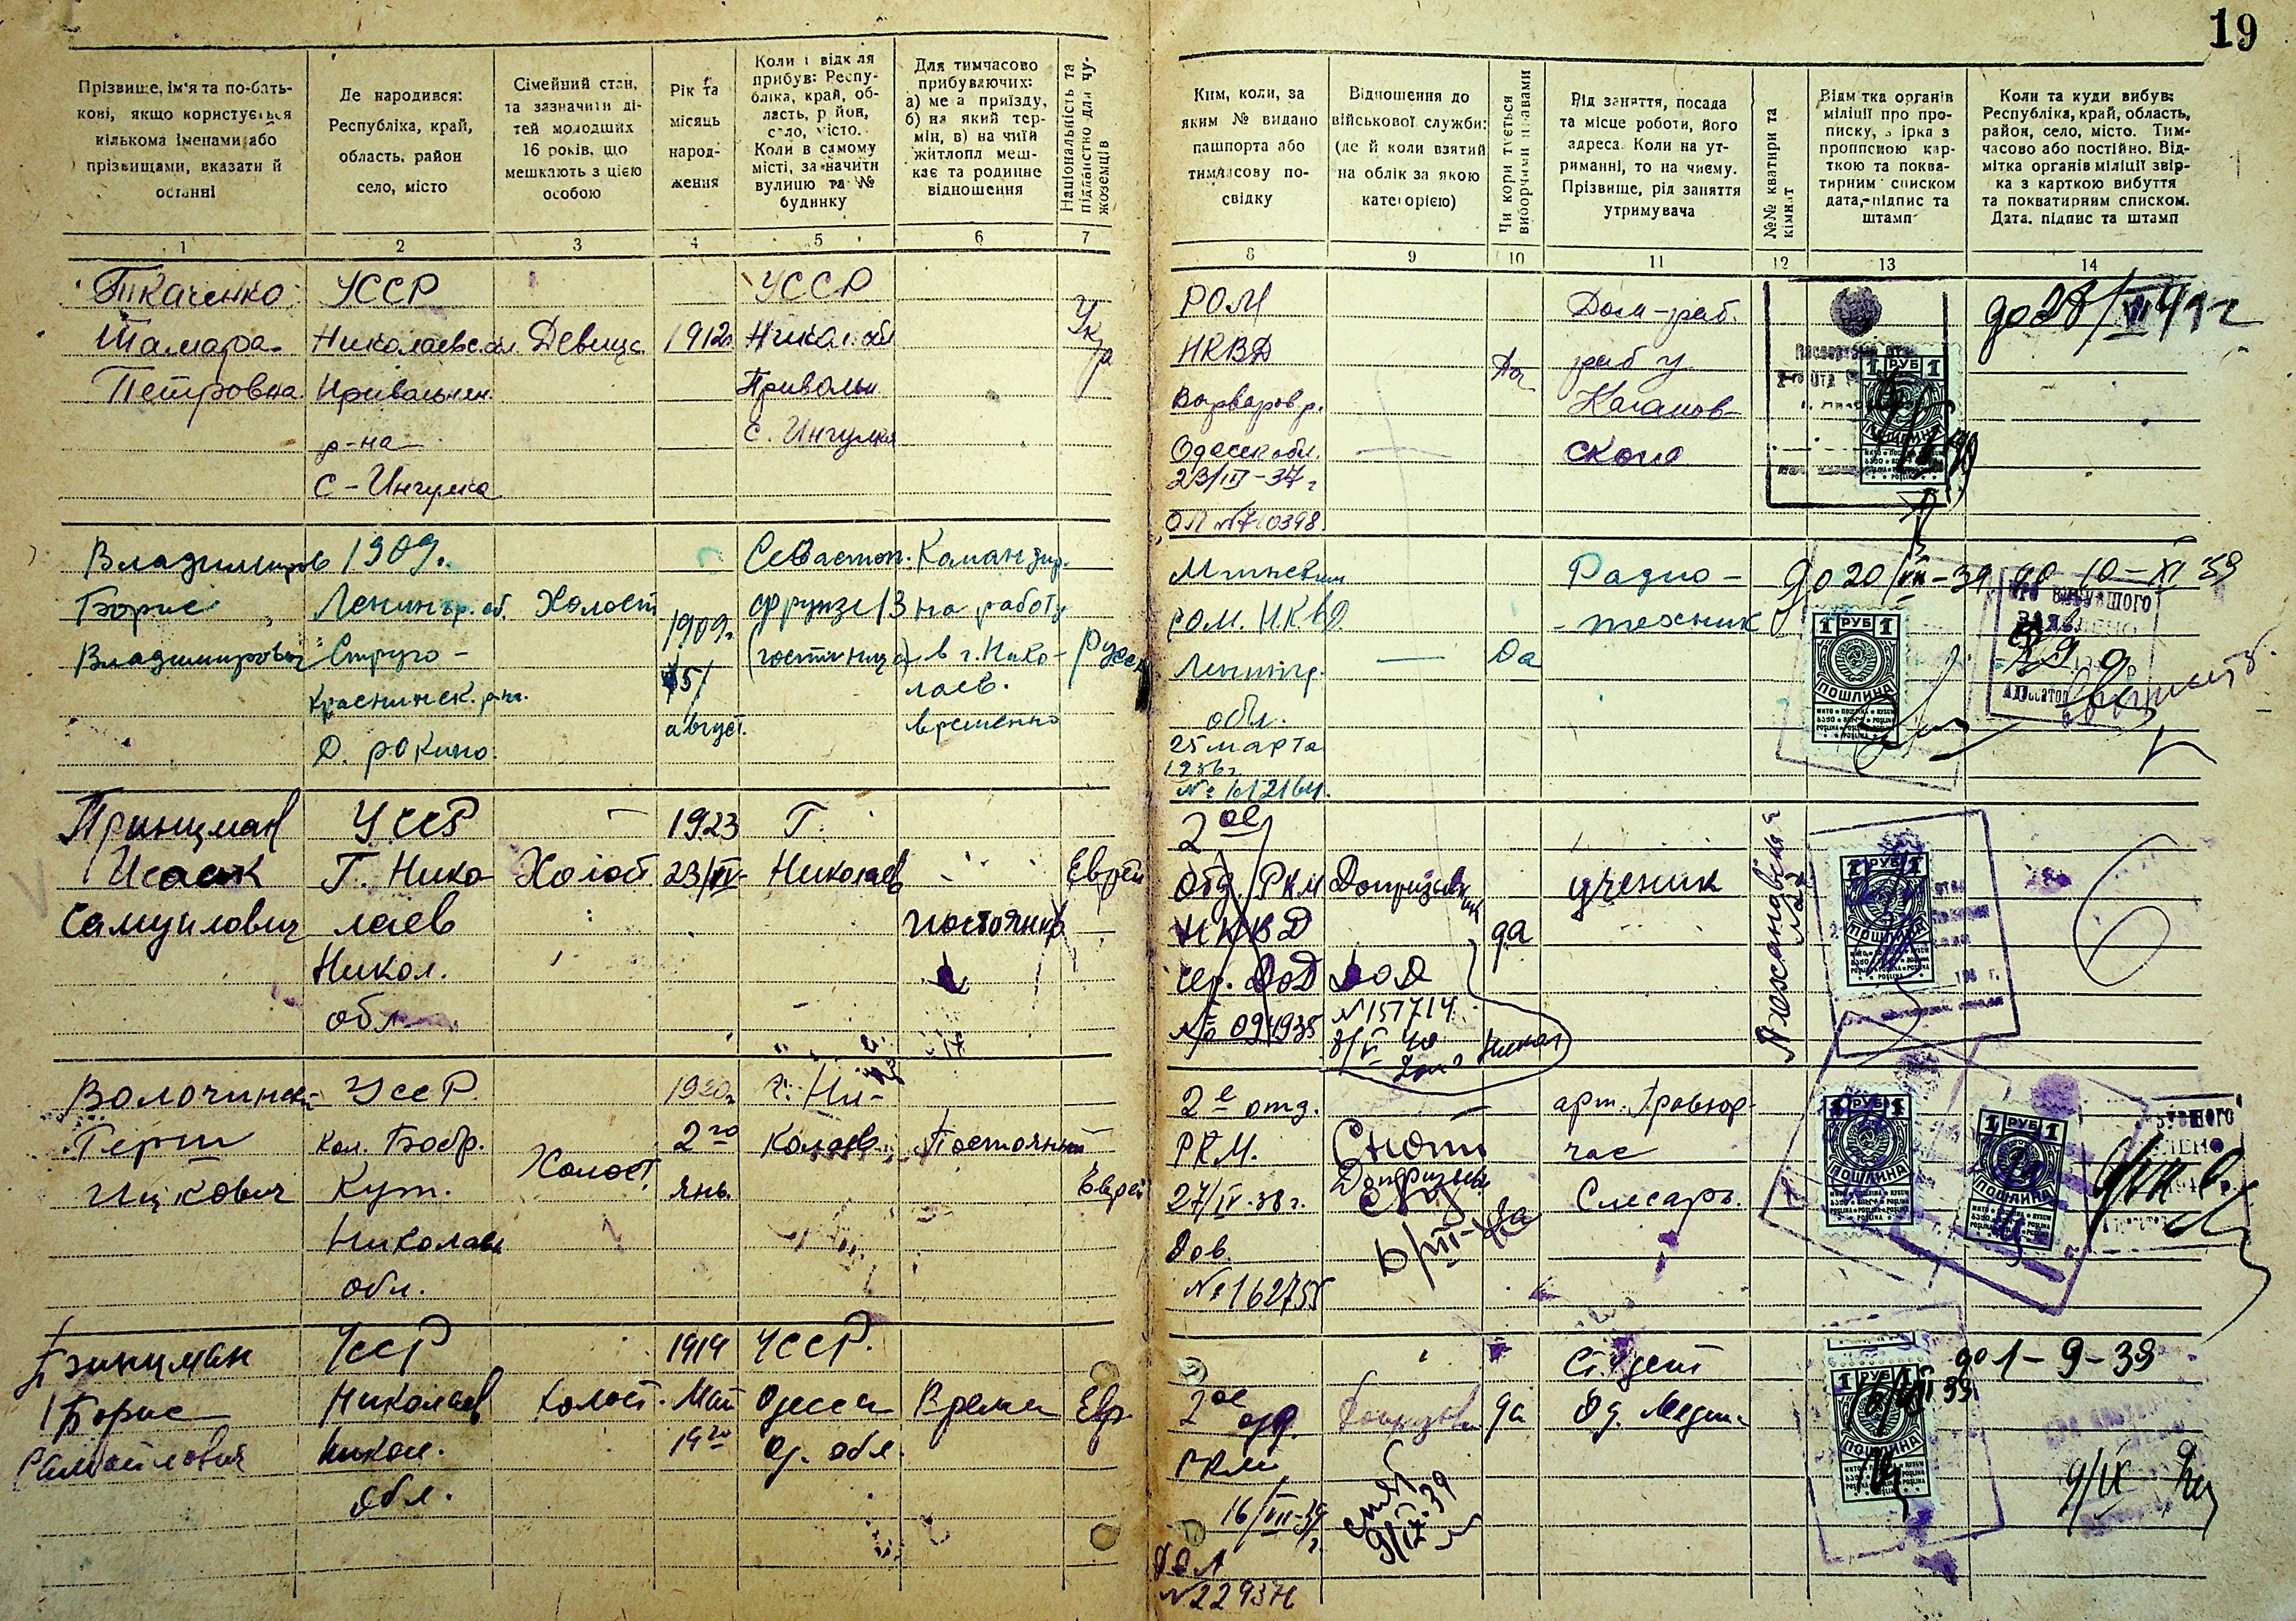 19
Прізвище, ім'я та по-бать-
кові, якщо користується
кількома іменами або
прізвищами, вказати й
останні
Де народився:
Республіка, край,
область, район
село, місто
Сімейний стан,
та зазначити ді-
тей молодших
16 років, що
мешкають з цією
особою
Рік та
місяць
народ-
ження
Коли і відкіля
прибув: Респу-
бліка, край, об-
ласть, район,
село, місто.
Коли в самому
місті, зазначити
вулицю та №
будинку
Для тимчасово
прибуваючих:
а) мета приїзду,
б) на який тер-
мін, в) на чиїй
житлопл меш-
кає та родинне
відношення
Національність та
підданство для чу-
жоземців
Ким, коли, за
яким № видано
пашпорта або
тимчасову по-
свідку
Відношення до
військової служби:
(де й коли взятий
на облік за якою
категорією)
Чи користується
виборчими правами
Рід заняття, посада
та місце роботи, його
адреса. Коли на ут-
риманні, то на чиєму.
Прізвище, рід заняття
утримувача
№№ квартири та
кімнат
Відмітка органів
міліції про про-
писку, звірка з
пропискою кар-
ткою та поква-
тирним списком
дата,-підпис та
штамп
Коли та куди вибув:
Республіка, край, область,
район, село, місто. Тим-
часово або постійно. Від-
мітка органів міліції звір-
ка з карткою вибуття
та покватирним списком.
Дата, підпис та штамп
1 2 3 4 5 6 7 8 9 10 11 12 13 14
Ткаченко
Тамара
Петровна
УССР
Николаевс. обл.
Привольнен.
р-на
с-Ингулка
Девица
1912
УССР
Никол. обл
Привольн
с. Ингулка
Укр
РОМ
НКВД
Варваров р.
Одесск обл.
23/III-37 г
Да
Дом-раб.
раб у
Каганов-
ского
1 РУБ 1
ПОШЛИНА
до 28/VII 41 г
Владимиров
Борис
Владимирович
1909.
Ленингр. об.
Струго-
Краснинск. р-на.
Д. рокино.
Холост
1909.
15/
август.
Севастоп.
Фрунзе 13
(гостиница)
Командир.
на работу
в г. Нико-
лаев.
временно
Русск
РОМ. Н.К.В.Д.
Ленингр.
обл.
25 марта
1936 г
Да
Радио-
-техник
до 20/VII-39
1 РУБ 1
ПОШЛИНА
до 10-XI 39
ПРО ВИБУВШОГО
ЗАЯВЛЕНО
Принцман
Исаак
Самуилович
УССР
Г. Нико
лаев
Никол.
обл
Холост
1923
Г.
Николаев
постоянно
Еврей
2ое
Отд РКМ
НКВД
сер. ДОД
№ 094935
Допризывник
ДОД
№ 157714
да
ученик
1 РУБ 1
ПОШЛИНА
Волочинск
Герш
Ицкович
УССР
Кол. Бобр.
Кут.
Николаев
обл.
Холост.
1920.
2го
янв.
г. Ни-
колаев
Постоянный
Еврей
2е отд.
РКМ.
27/IV-38 г.
№ 162755
Снят
Допризывн
Да
час
Слесарь.
1 РУБ 1
ПОШЛИНА
1 РУБ 1
ПОШЛИНА
Принцман
Борис
Самойлович
УССР
Николаев
Никол.
обл.
Холост.
1919
Май
19го
УССР.
Одесса
Од. обл.
Времен
Евр.
2ое
отд.
РКМ
16/VII-39
г.
снят
9/IX-39
да
Студент
Од. Медин
1 РУБ 1
ПОШЛИНА
до 1-9-39
9/IX